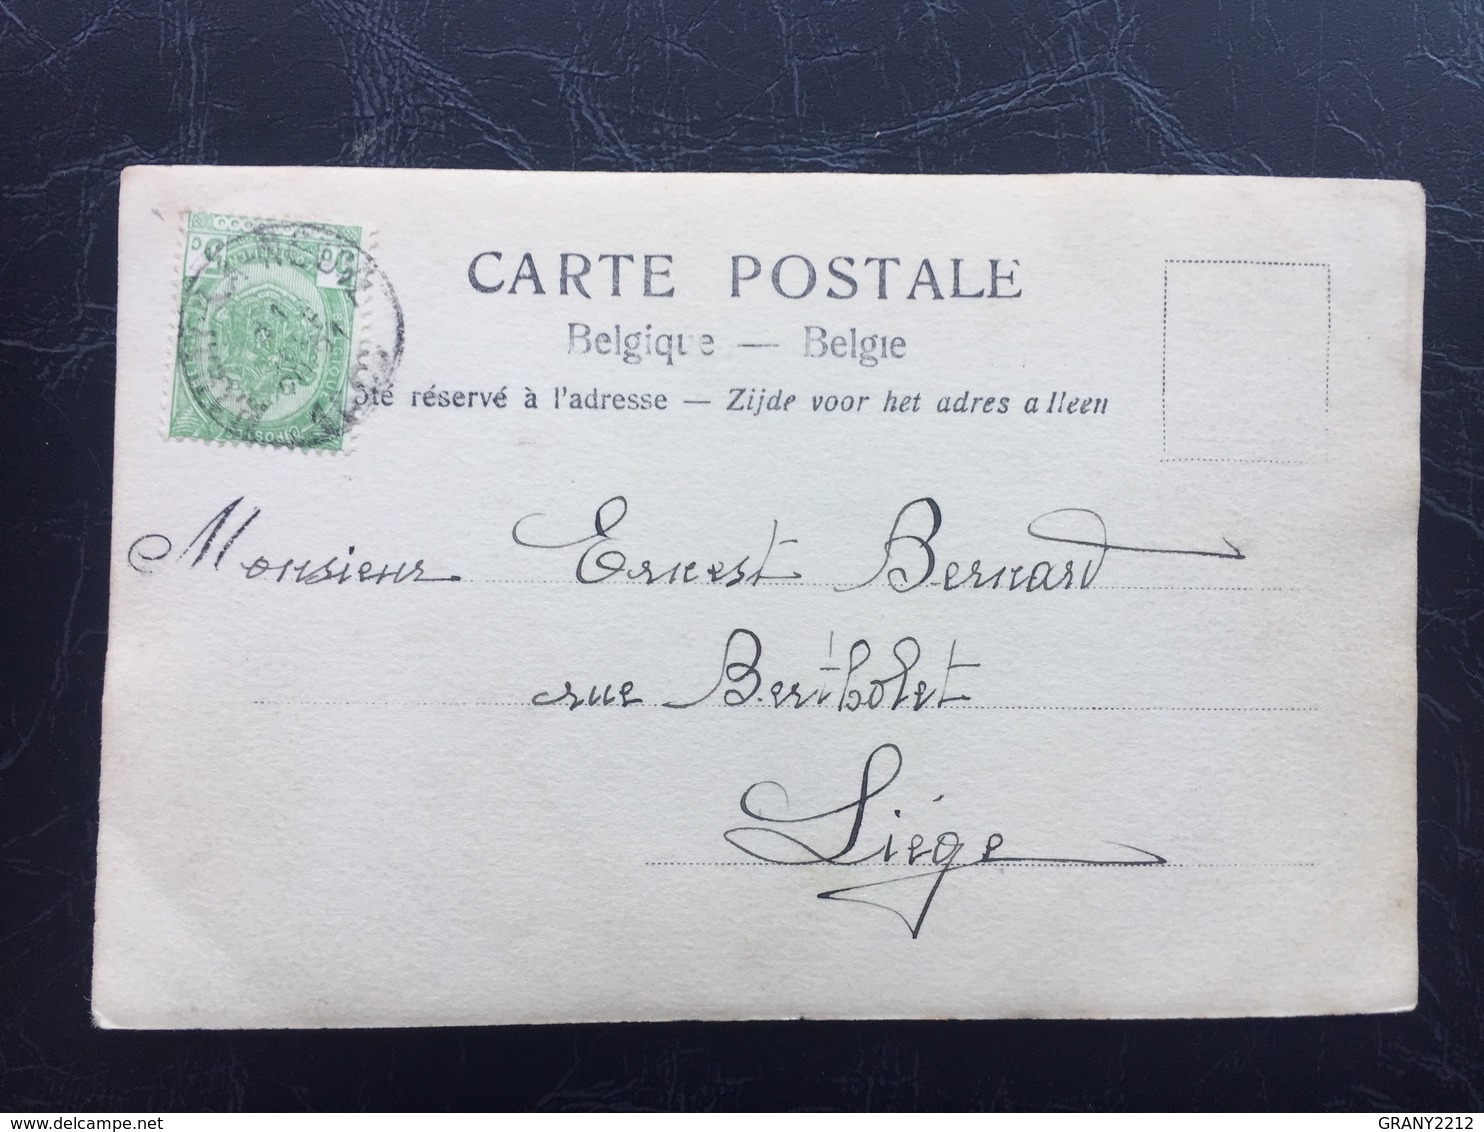 CARTE POSTALE
Belgique — Belgie
oté réservé à l'adresse — Zijde voor het adres alleen
Monsieur Ernest Bernard
rue Berthollet
Liége
www.delcampe.net
GRANY2212